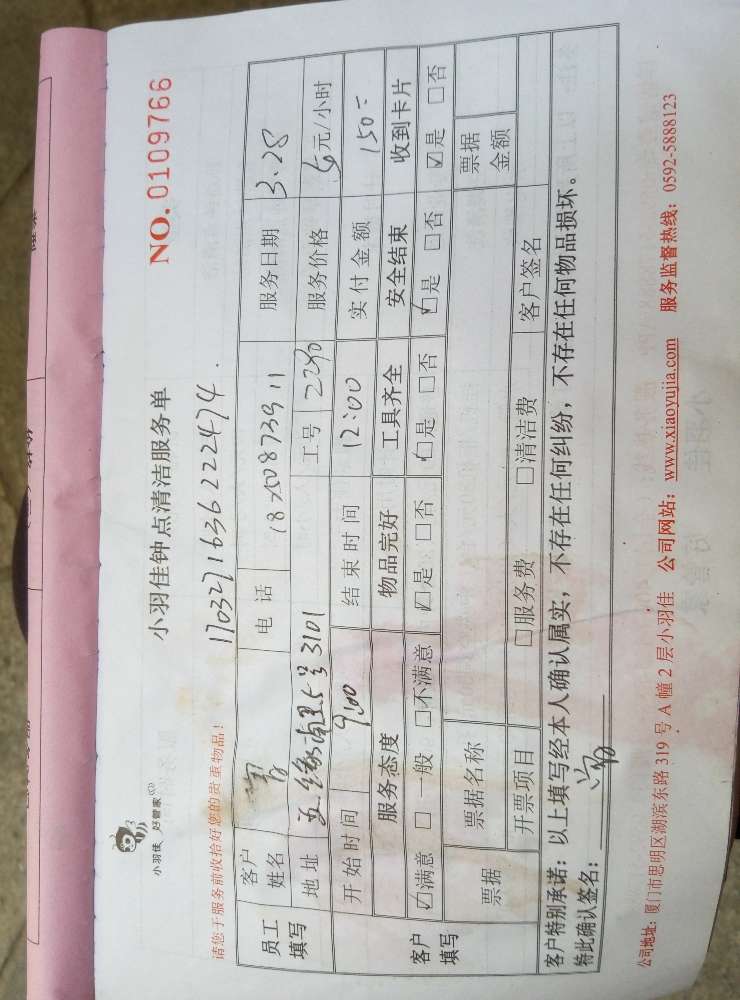 小羽佳 好管家
小羽佳钟点清洁服务单
NO. 0109766
请您于服务前收拾好您的贵重物品!
170327163622474
员工填写 客户姓名 曾 电话 服务日期 3.28
地址 3101 工号 2290 服务价格 元/小时
开始时间 9:00 结束时间 12:00 实付金额 150=
客户填写 服务态度 物品完好 工具齐全 安全结束 收到卡片
☑满意 □一般 □不满意 ☑是 □否 ☑是 □否 ☑是 □否 ☑是 □否
票据 票据名称 票据金额
开票项目 □服务费 □清洁费 客户签名
客户特别承诺:以上填写经本人确认属实,不存在任何纠纷,不存在任何物品损坏。
特此确认签名: 曾
公司地址:厦门市思明区湖滨东路 319 号 A 幢 2 层小羽佳 公司网站:www.xiaoyujia.com 服务监督热线:0592-5888123